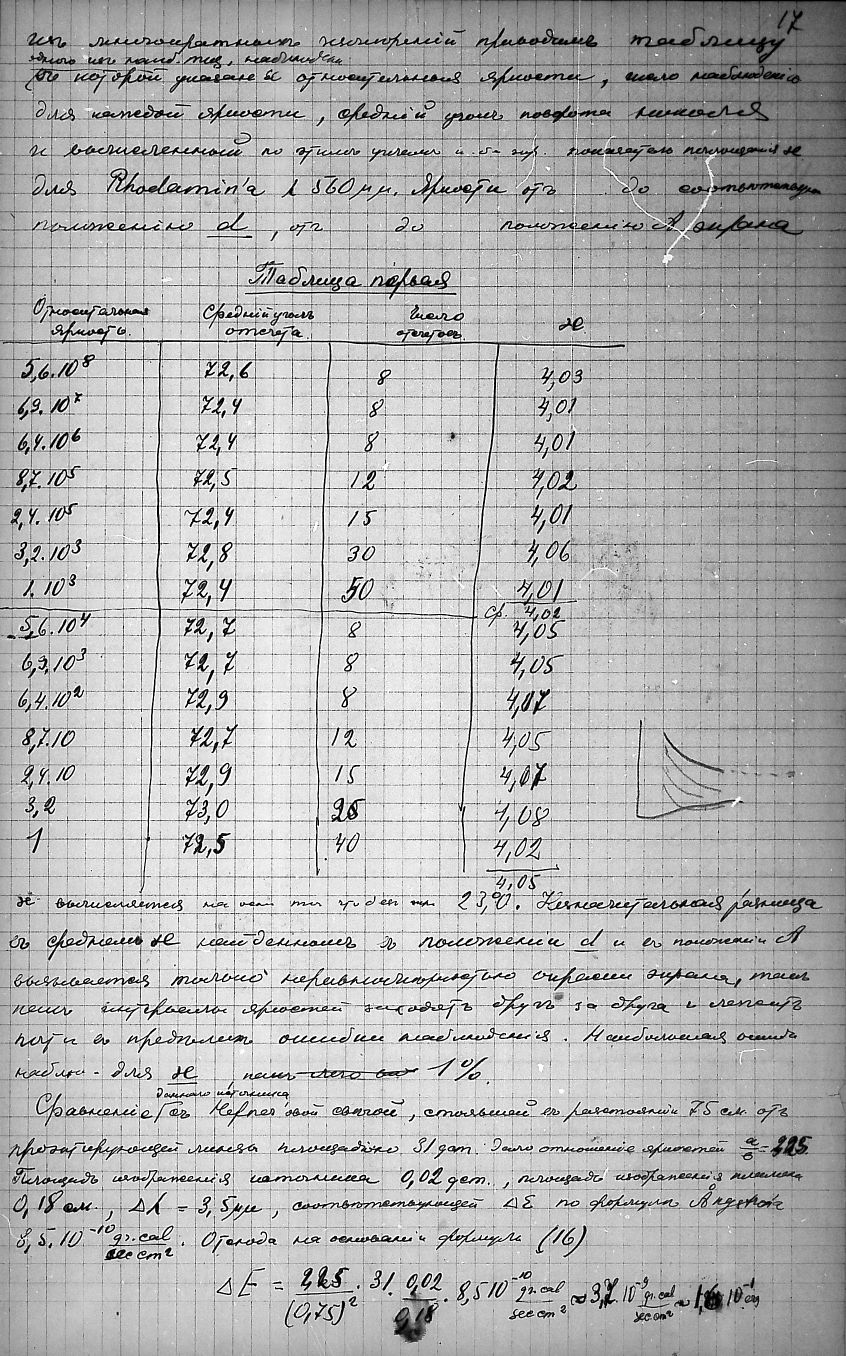 17
изъ многократныхъ измѣреній приводимъ таблицу
въ которой указаны относительныя яркости, число наблюденій
для каждой яркости, средній уголъ поворота николя
и вычисленный по этимъ угламъ показатель поглощенія ϰ
для Rhodamin'a λ 560 μμ. Яркости отъ до соотвѣтствуютъ
положенію d, отъ до положенію A экрана
Таблица первая
Относительная яркость. Средній уголъ отсчета. Число отсчетовъ. ϰ
5,6.10⁸ 72,6 8 4,03
6,9.10⁷ 72,4 8 4,01
6,4.10⁶ 72,4 8 4,01
8,7.10⁵ 72,5 12 4,02
2,4.10⁵ 72,4 15 4,01
3,2.10³ 72,8 30 4,06
1.10³ 72,4 50 4,01
ср 4,02
5,6.10⁴ 72,7 8 4,05
6,9.10³ 72,7 8 4,05
6,4.10² 72,9 8 4,07
8,7.10 72,7 12 4,05
2,4.10 72,9 15 4,07
3,2 73,0 26 4,08
1 72,5 40 4,02
4,05
ϰ вычисляется 23,0. Незначительная разница
въ среднемъ ϰ найденномъ въ положеніи d и въ положеніи A
вызывается только неравномѣрностью окраски экрана, такъ
какъ интервалы яркостей заходятъ другъ за друга и лежатъ
почти въ предѣлахъ ошибки наблюденія. Наибольшая ошибка
наблю- для ϰ 1%.
данного источника
Сравненіе съ Нернст'овой свѣчой, стоявшей въ разстояніи 75 см. отъ
проэктирующей линзы площадью 31 дало отношеніе яркостей a/b = 225
Площадь изображенія источника 0,02, площадь изображенія
0,18 см., Δλ = 3,5 μμ, соотвѣтствующей ΔE по формулѣ Ångström'а
8,5.10⁻¹⁰ gr.cal/sec cm². Отсюда на основаніи формулы (16)
ΔE = 225/(0,75)² . 31. 0,02/0,18 . 8,5 10⁻¹⁰ gr.cal/sec cm² ∾ 3,7.10⁻⁹ gr.cal/sec cm² ∾